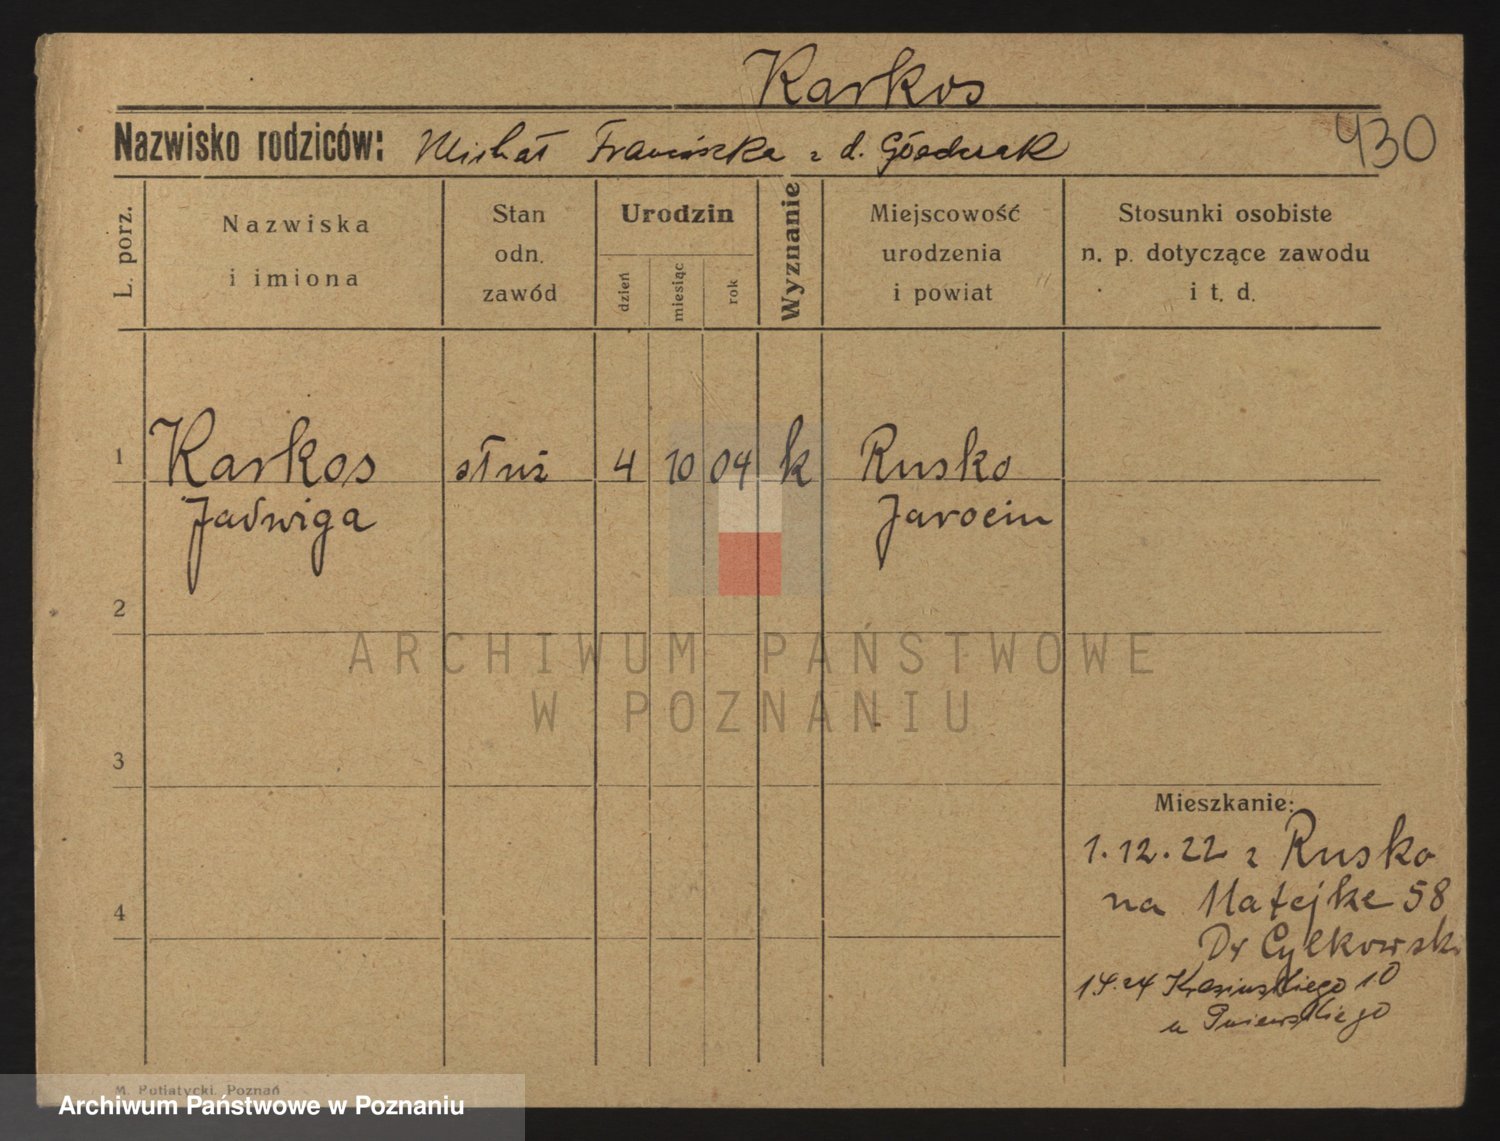 Karkos
430
Nazwisko rodziców: Michał Franciszka z d.
L. porz.
Nazwiska i imiona
Stan odn. zawód
Urodzin
dzień miesiąc rok
Wyznanie
Miejscowość urodzenia i powiat
Stosunki osobiste n. p. dotyczące zawodu i t. d.
1 Karkos służ 4 10 04 k Rusko
Jadwiga Jarocin
2
ARCHIWUM PAŃSTWOWE
W POZNANIU
3
Mieszkanie:
1.12.22 z Rusko
4 na Matejke 58
Dr Cylkowski
Krasińskiego 10
u Pniewskiego
M. Putiatycki, Poznań
Archiwum Państwowe w Poznaniu